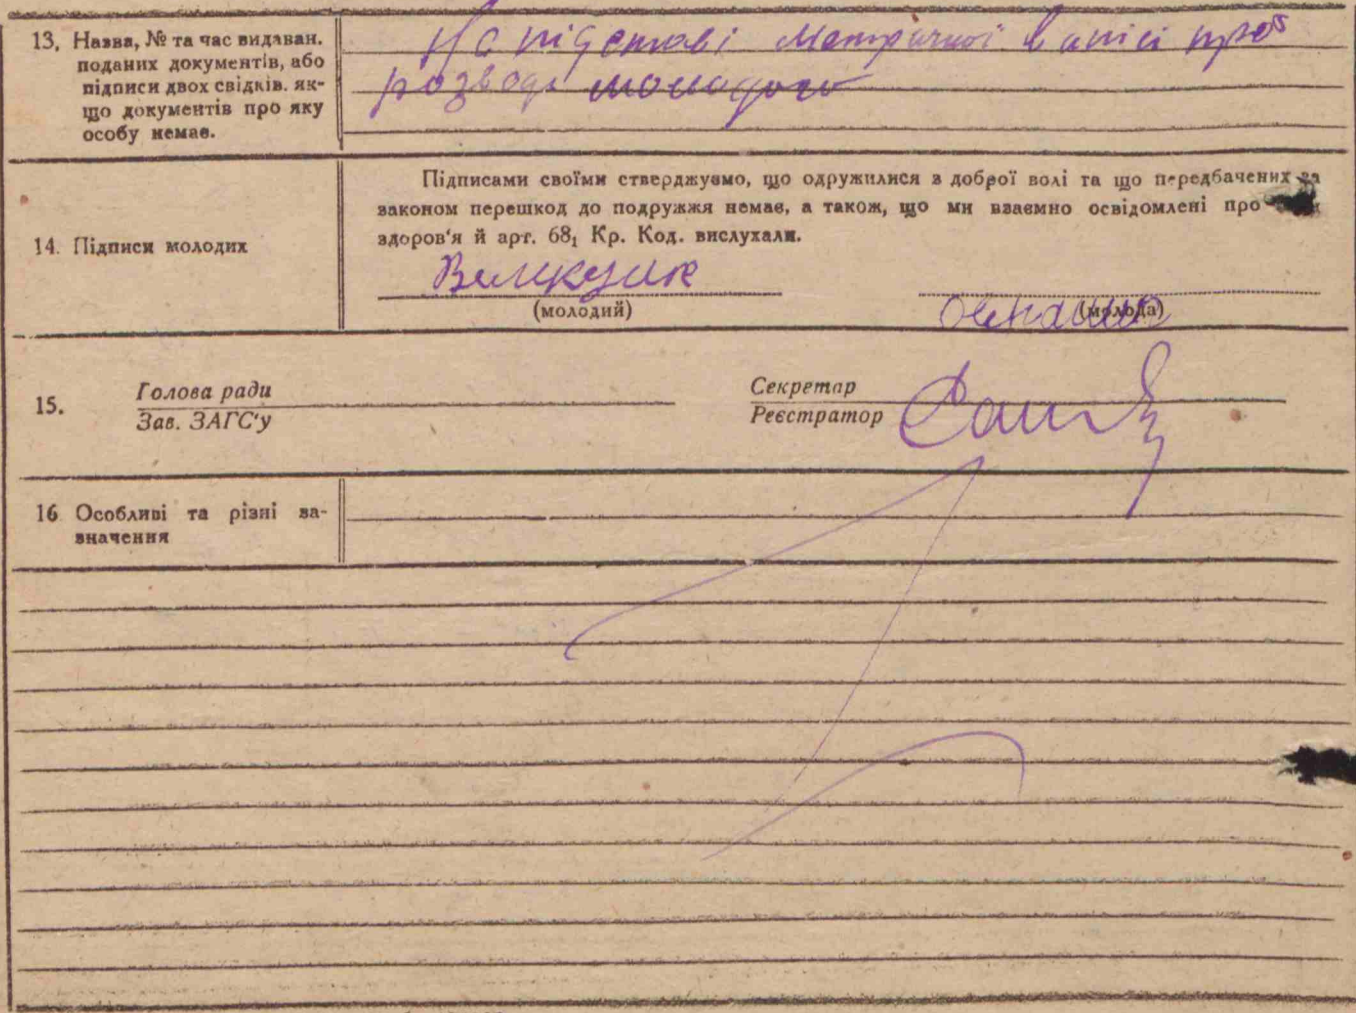 13, Назва, № та час видаван. поданих документів, або підписи двох свідків. якщо документів про яку особу немає.
На підставі метричної вписі про
розвода молодого
14. Підписи молодих
Підписами своїми стверджуємо, що одружилися з доброї волі та що передбачених за
законом перешкод до подружжя немає, а також, що ми взаємно освідомлені про
здоров'я й арт. 68₁ Кр. Код. вислухали.
(молодий)
(молода)
15.
Голова ради
Зав. ЗАГС'у
Секретар
Реєстратор
16 Особливі та різні за-
значення